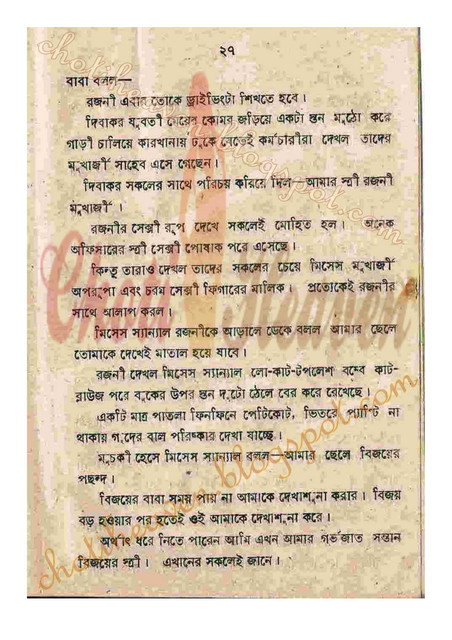 ২৭
বাবা বলল—
রজনী এবার তোকে ড্রাইভিংটা শিখতে হবে।
দিবাকর যুবতী মেয়ের কোমর জড়িয়ে একটা স্তন মুঠো করে
গাড়ী চালিয়ে কারখানায় ঢুকে যেতেই কর্মচারীরা দেখল তাদের
মুখার্জী সাহেব এসে গেছেন।
দিবাকর সকলের সাথে পরিচয় করিয়ে দিল আমার স্ত্রী রজনী
মুখার্জী।
রজনীর সেক্সী রূপ দেখে সকলেই মোহিত হল। অনেক
অফিসারের স্ত্রী সেক্সী পোষাক পরে এসেছে।
কিন্তু তারাও দেখল তাদের সকলের চেয়ে মিসেস মুখার্জী
অপরূপা এবং চরম সেক্সী ফিগারের মালিক। প্রত্যেকেই রজনীর
সাথে আলাপ করল।
মিসেস স্যান্যাল রজনীকে আড়ালে ডেকে বলল আমার ছেলে
তোমাকে দেখেই মাতাল হয়ে যাবে।
রজনী দেখল মিসেস স্যান্যাল লো-কাট-টপলেশ বম্বে কাট-
ব্লাউজ পরে বুকের উপর স্তন দুটো ঠেলে বের করে রেখেছে।
একটি মাত্র পাতলা ফিনফিনে পেটিকোট, ভিতরে প্যান্টি না
থাকায় গুদের বাল পরিষ্কার দেখা যাচ্ছে।
মুচকী হেসে মিসেস স্যান্যাল বলল—আমার ছেলে বিজয়ের
পছন্দ।
বিজয়ের বাবা সময় পায় না আমাকে দেখাশুনা করার। বিজয়
বড় হওয়ার পর হতেই ওই আমাকে দেখাশুনা করে।
অর্থাৎ ধরে নিতে পারেন আমি এখন আমার গর্ভজাত সন্তান
বিজয়ের স্ত্রী। এখানের সকলেই জানে।